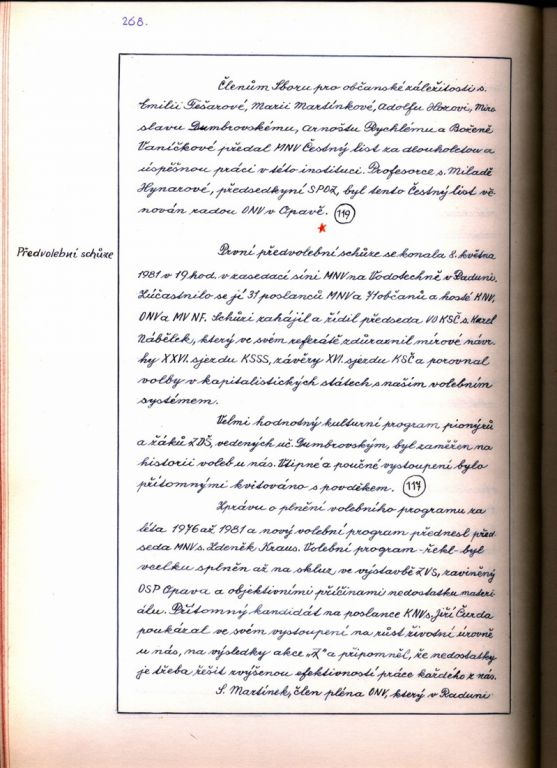 268.
Členům Sboru pro občanské záležitosti s.
Emilii Tešarové, Marii Martínkové, Adolfu Horovi, Miro
slavu Dumbrovskému, Arnoštu Rychlému a Boženě
Vaníčkové předal MNV Čestný list za dlouholetou a
úspěšnou práci v této instituci. Profesorce s. Miladě
Hynarové, předsedkyní SPOZ, byl tento Čestný list vě-
nován radou ONV v Opavě. 119
Předvolební schůze
První předvolební schůze se konala 8. května
1981 v 19 hod. v zasedací síni MNV na Vodotechně v Raduni.
Zúčastnilo se jí 31 poslanců MNV a 71 občanů a hosté KNV,
ONV a MV NF. Schůzi zahájil a řídil předseda VO KSČ s. Karel
Nábělek, který ve svém referátě zdůraznil mírové návr-
hy XXVI. sjezdu KSSS, závěry XVI. sjezdu KSČ a porovnal
volby v kapitalistických státech s naším volebním
systémem.
Velmi hodnotný kulturní program pionýrů
a žáků ZDŠ, vedených uč. Dumbrovským, byl zaměřen na
historii voleb u nás. Vtipné a poučné vystoupení bylo
přítomnými kvitováno s povděkem. 117
Zprávu o plnění volebního programu za
léta 1976 až 1981 a nový volební program přednesl před
seda MNV s. Zdeněk Kraus. Volební program -řekl- byl
vcelku splněn až na skluz, ve výstavbě ZVS, zaviněný
OSP Opava a objektivními příčinami nedostatku materi-
álu. Přítomný kandidát na poslance KNV s. Jiří Čurda
poukázal ve svém vystoupení na růst životní úrovně
u nás, na výsledky akce „Z" a připomněl, že nedostatky
je třeba řešit zvýšenou efektivností práce každého z nás.
S. Martínek, člen pléna ONV, který v Raduni